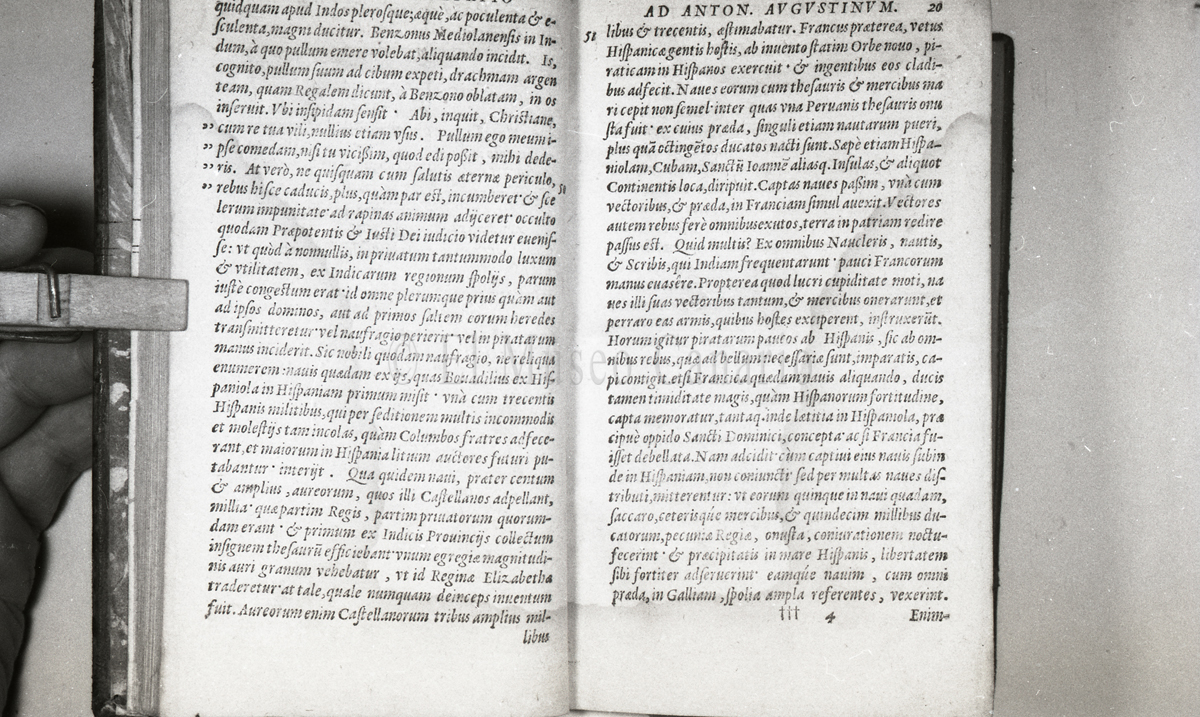 quidquam apud Indos plerosque, æquè, ac poculenta & e-
sculenta, magni ducitur. Benzonus Mediolanensis in In-
dum, à quo pullum emere volebat, aliquando incidit. Is,
cognito, pullum suum ad cibum expeti, drachmam argen
team, quam Regalem dicunt, à Benzono oblatam, in os
inseruit. Vbi insipidam sensit · Abi, inquit, Christiane,
” cum re tua vili, nullius etiam vsus. Pullum ego meum i-
” pse comedam, nisi tu vicißim, quod edi poßit, mihi dede-
” ris. At verò, ne quisquam cum salutis æternæ periculo,
” rebus hisce caducis, plus, quàm par est, incumberet · & sce
lerum impunitate · ad rapinas animum adijceret · occulto
quodam Præpotentis & Iusti Dei iudicio videtur euenis-
se: vt quòd à nonnullis, in priuatum tantummodo luxum
& vtilitatem, ex Indicarum regionum spolijs, parum
iustè congestum erat · id omne plerumque prius quàm aut
ad ipsos dominos, aut ad primos saltem eorum heredes
transmitteretur · vel naufragio perierit · vel in piratarum
manus inciderit. Sic nobili quodam naufragio, ne reliqua
enumerem · nauis quædam ex ijs, quas Bouadilius ex His-
paniola in Hispaniam primum misit · vnà cum trecentis
Hispanis militibus, qui per seditionem multis incommodis
et molestijs tam incolas, quàm Columbos fratres adfece-
rant, et maiorum in Hispania litium auctores futuri pu-
tabantur · interijt. Qua quidem naui, præter centum
& amplius, aureorum, quos illi Castellanos adpellant,
millia · quæ partim Regis, partim priuatorum quorum-
dam erant · & primum ex Indicis Prouincijs collectum
insignem thesaurū efficiebant · vnum egregiæ magnitudi-
nis auri granum vehebatur, vt id Reginæ Elizabethæ
traderetur · at tale, quale numquam deinceps inuentum
fuit. Aureorum enim Castellanorum tribus amplius mil-
libus
51
AD ANTON. AVGVSTINVM. 20
51 libus & trecentis, æstimabatur. Francus præterea, vetus
Hispanicæ gentis hostis, ab inuento statim Orbe nouo, pi-
raticam in Hispanos exercuit · & ingentibus eos cladi-
bus adfecit. Naues eorum cum thesauris & mercibus ma
ri cepit non semel · inter quas vna Peruanis thesauris onu
sta fuit · ex cuius præda, singuli etiam nautarum pueri,
plus quā octingētos ducatos nacti sunt. Sæpè etiam Hispa-
niolam, Cubam, Sanctū Ioannē aliasq. Insulas, & aliquot
Continentis loca, diripuit. Captas naues paßim, vnà cum
vectoribus, & præda, in Franciam simul auexit. Vectores
autem rebus ferè omnibus exutos, terra in patriam redire
passus est. Quid multis? Ex omnibus Naucleris, nautis,
& Scribis, qui Indiam frequentarunt · pauci Francorum
manus euasêre. Propterea quod lucri cupiditate moti, na
ues illi suas vectoribus tantum, & mercibus onerarunt, et
perraro eas armis, quibus hostes exciperent, instruxerūt.
Horum igitur piratarum paucos ab Hispanis, sic ab om-
nibus rebus, quæ ad bellum necessariæ sunt, imparatis, ca-
pi contigit. etsi Francica quædam nauis aliquando, ducis
tamen timiditate magis, quàm Hispanorum fortitudine,
capta memoratur, tantaq. inde lætitia in Hispaniola, præ
cipuè oppido Sancti Dominici, concepta · ac si Francia fu-
isset debellata. Nam adcidit · cùm captiui eius nauis subin
de in Hispaniam, non coniunctī sed per multas naues dis-
tributi, mitterentur: vt eorum quinque in naui quadam,
saccaro, ceterisque mercibus, & quindecim millibus du-
catorum, pecuniæ Regiæ, onusta, coniurationem noctu ·
fecerint · & præcipitatis in mare Hispanis, libertatem
sibi fortiter adseruerint · eamque nauim, cum omni
præda, in Galliam, spolia ampla referentes, vexerint.
††† 4 Enim-